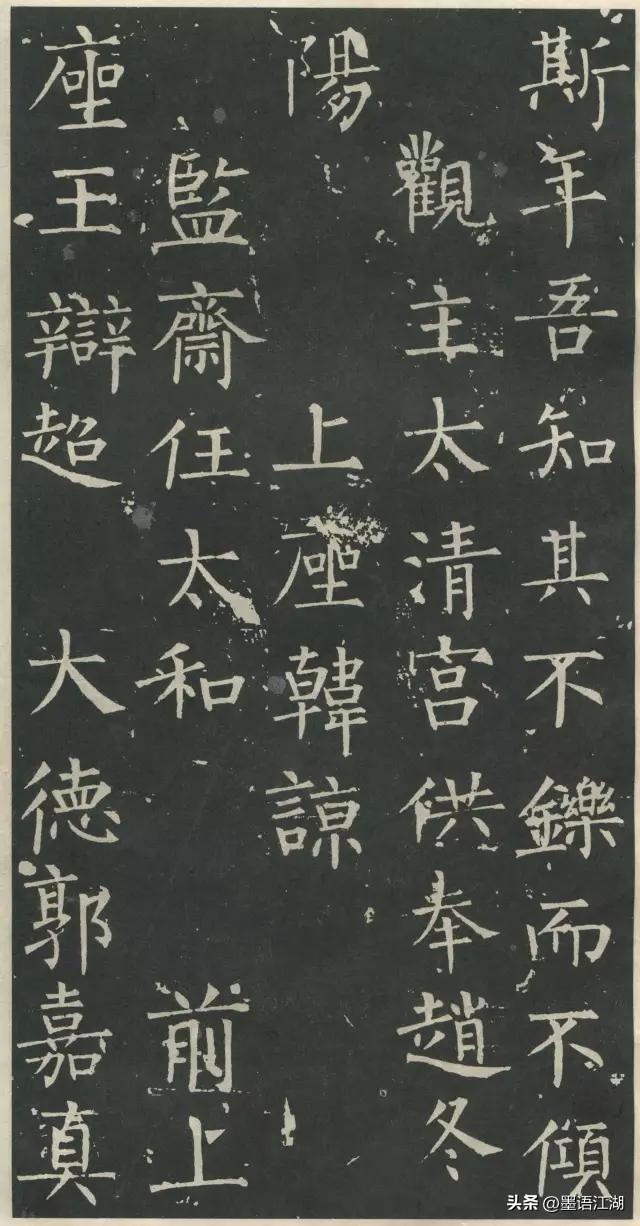 斯年吾知其不鑠而不傾
觀主太清宮供奉趙冬
陽 上座韓諒
監齋任太和 前上
座王辯超 大德郭嘉真
头条 @墨语江湖